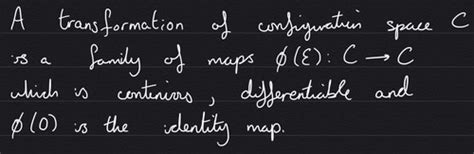 A transformation of configuration space C
is a family of maps ϕ(ε): C → C
which is continious, differentiable and
ϕ(0) is the identity map.